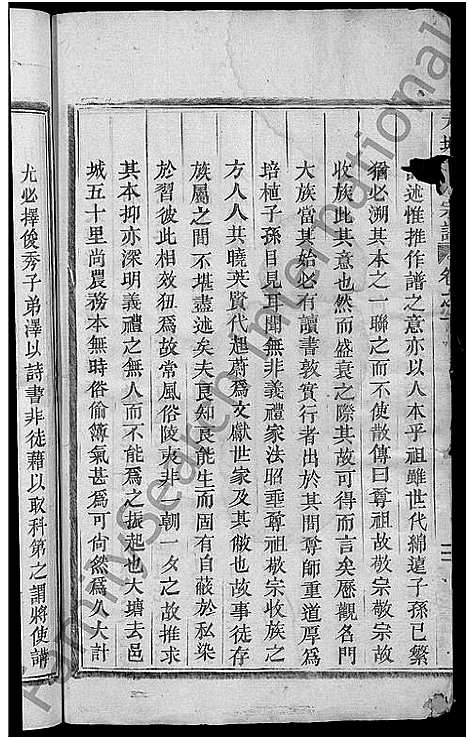 宗譜 卷之
述惟推作譜之意亦以人本乎祖雖世代綿遠子孫已繁
猶必溯其本之一聯之而不使散傳曰尊祖故敬宗敬宗故
收族此其意也然而盛衰之際其故可得而言矣歷觀名門
大族當其始必有讀書敦實行者出於其間尊師重道厚爲
培植子孫目見耳聞無非義禮家法昭垂尊祖敬宗收族之
方人人共曉英賢代起蔚爲文獻世家及其儆也故事徒存
族屬之間不堪盡述矣夫良知良能生而固有自蔽於私染
於習彼此相效狃爲故常風俗陵夷非一朝一夕之故推求
其本抑亦深明義禮之無人而不能爲之振起也大塘去邑
城五十里尚農務本無時俗偷簿氣甚爲可尙然爲久大計
尤必擇俊秀子弟澤以詩書非徒藉以取科第之謂將使講
FamilySearch International